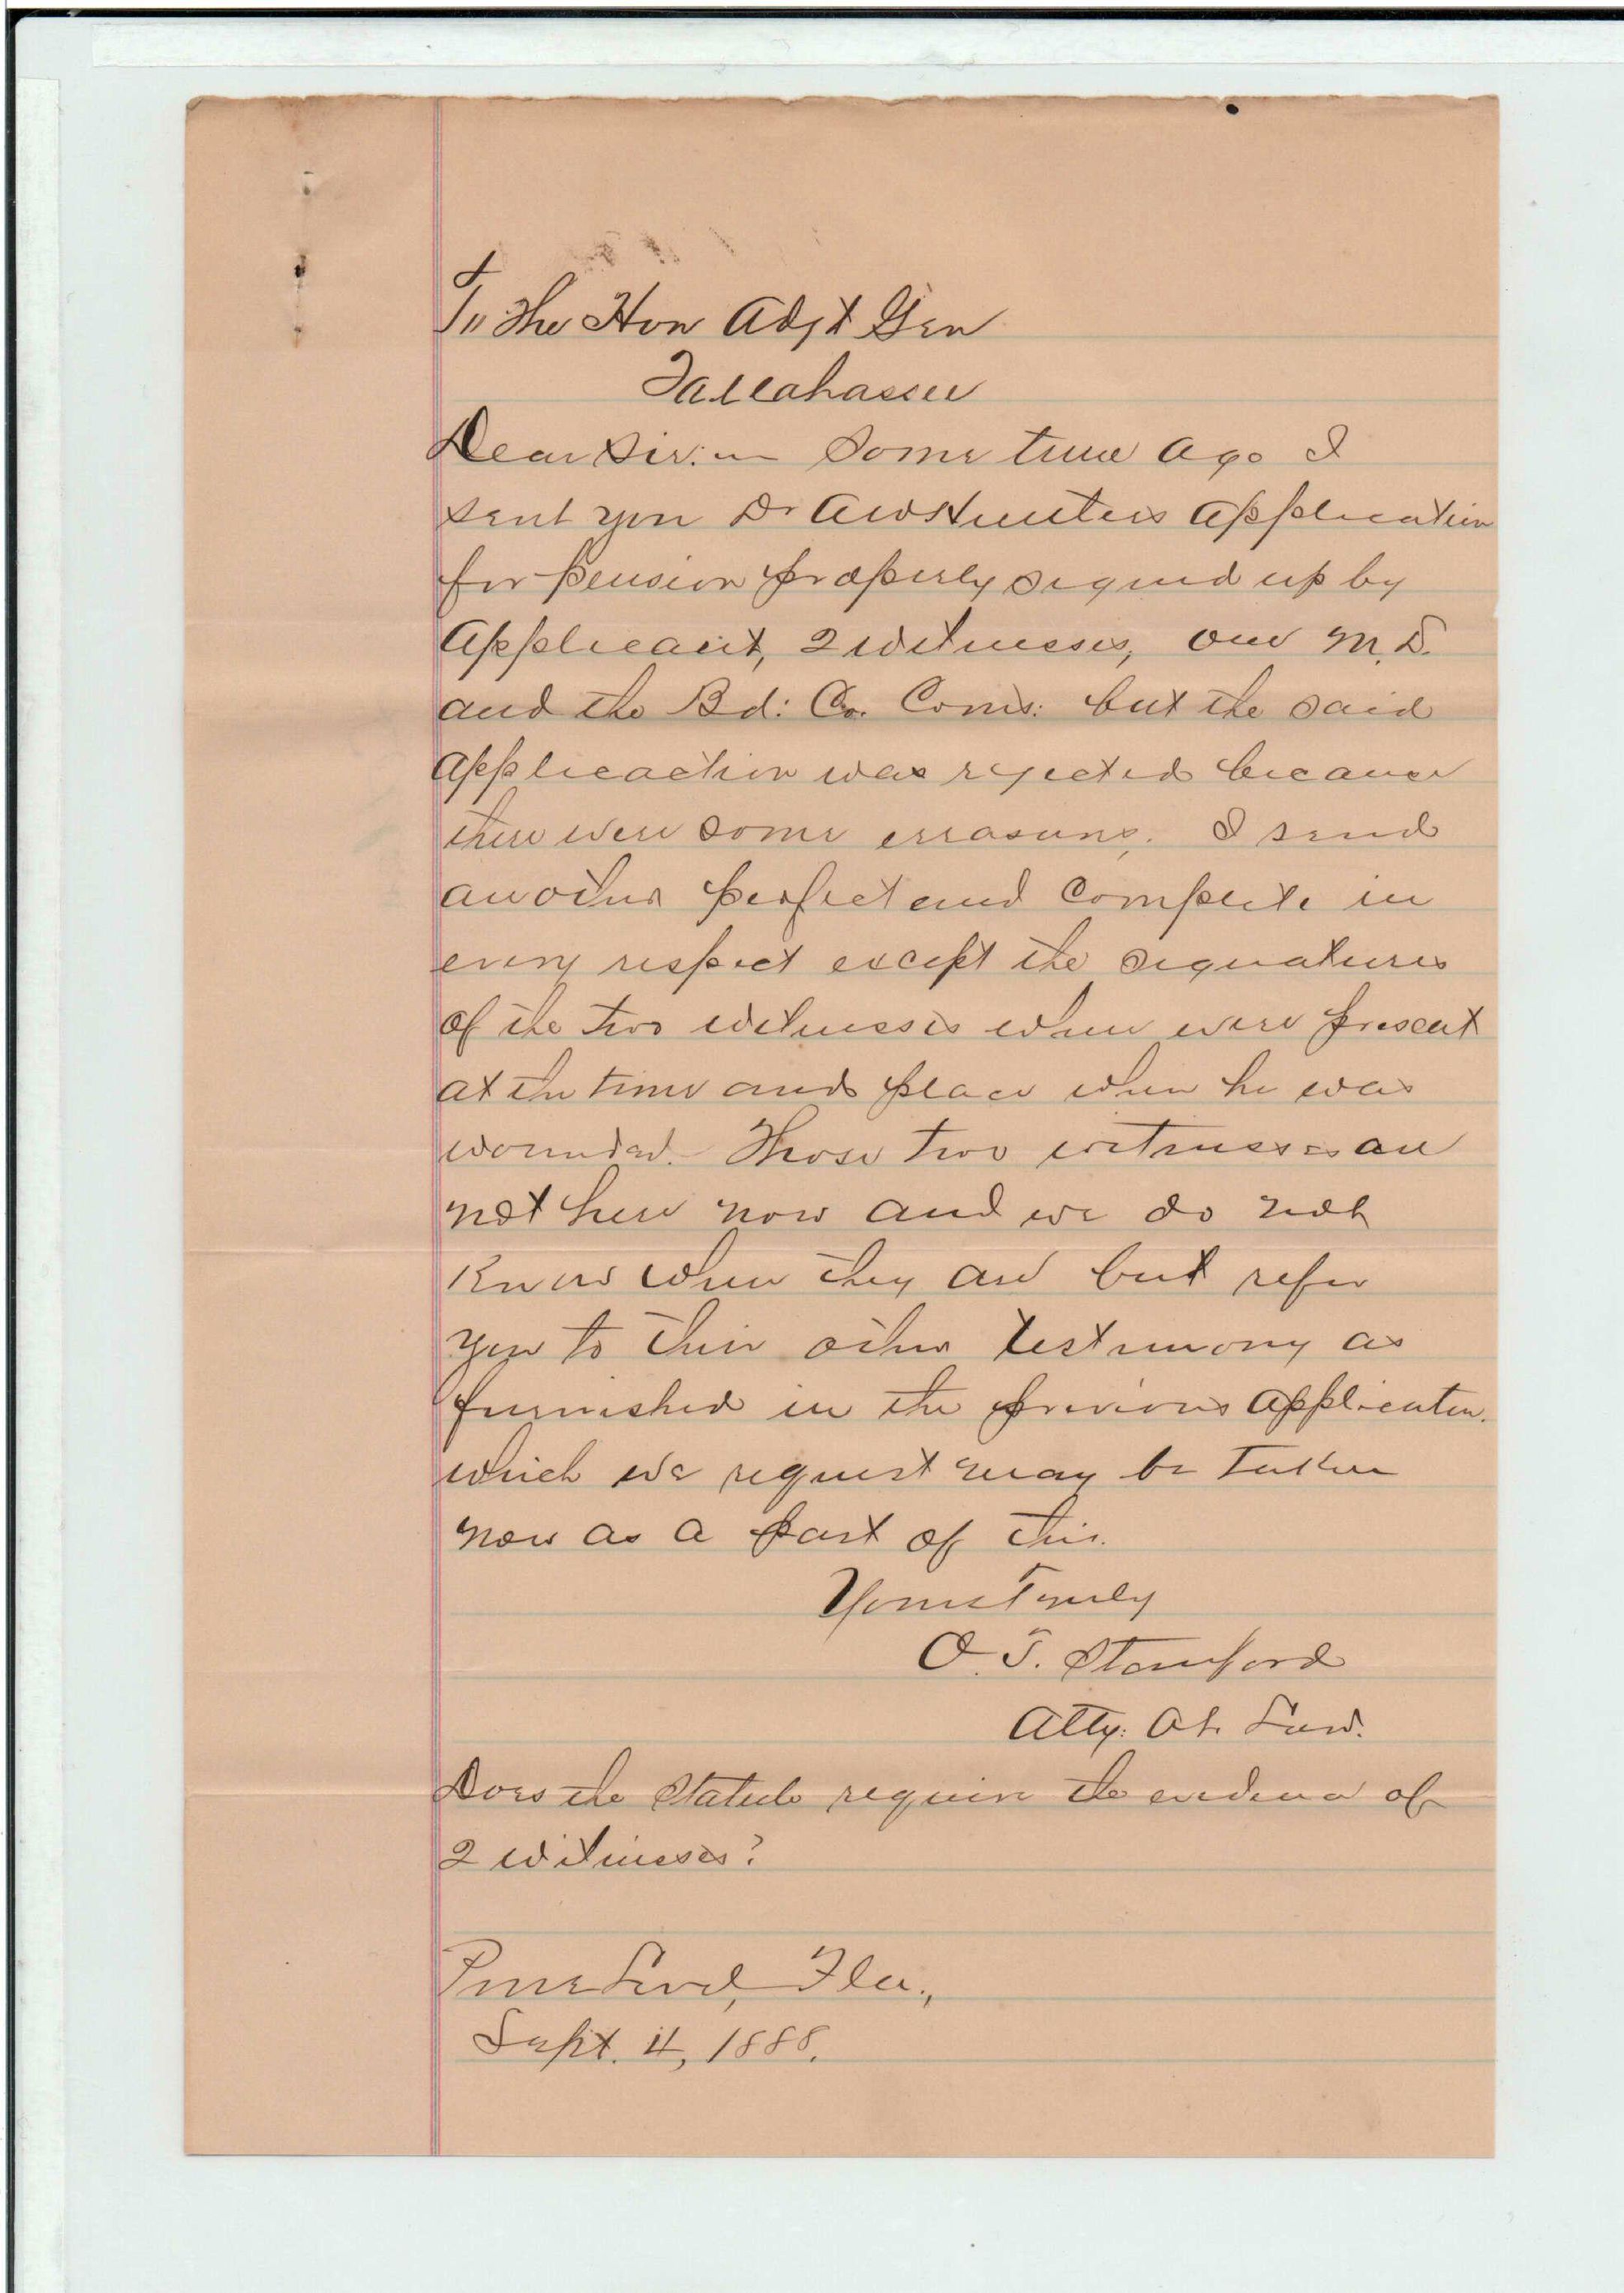 To the Hon Adjt Gen
Tallahassee
Dear Sir:— Some time ago I
sent you Dr Hunters Application
for pension properly signed up by
Applicant, 2 witnesses, one M.D.
and the Bd: Co. Coms: but the said
Applicaction was rejected because
there were some errasures. I send
another perfect and complete in
every respect except the signatures
of the two witnesses when were present
at the time and place when he was
wounded. Those two witnesses are
not here now and we do not
know where they are but refer
you to their other testimony as
furnished in the previous application.
which we request may be taken
now as a part of this.
Yours Truly
O. T. Stanford
Atty: At Law.
Does the Statute require the evidence of
2 witnesses?
Pine Level, Fla.,
Sept. 4, 1888.